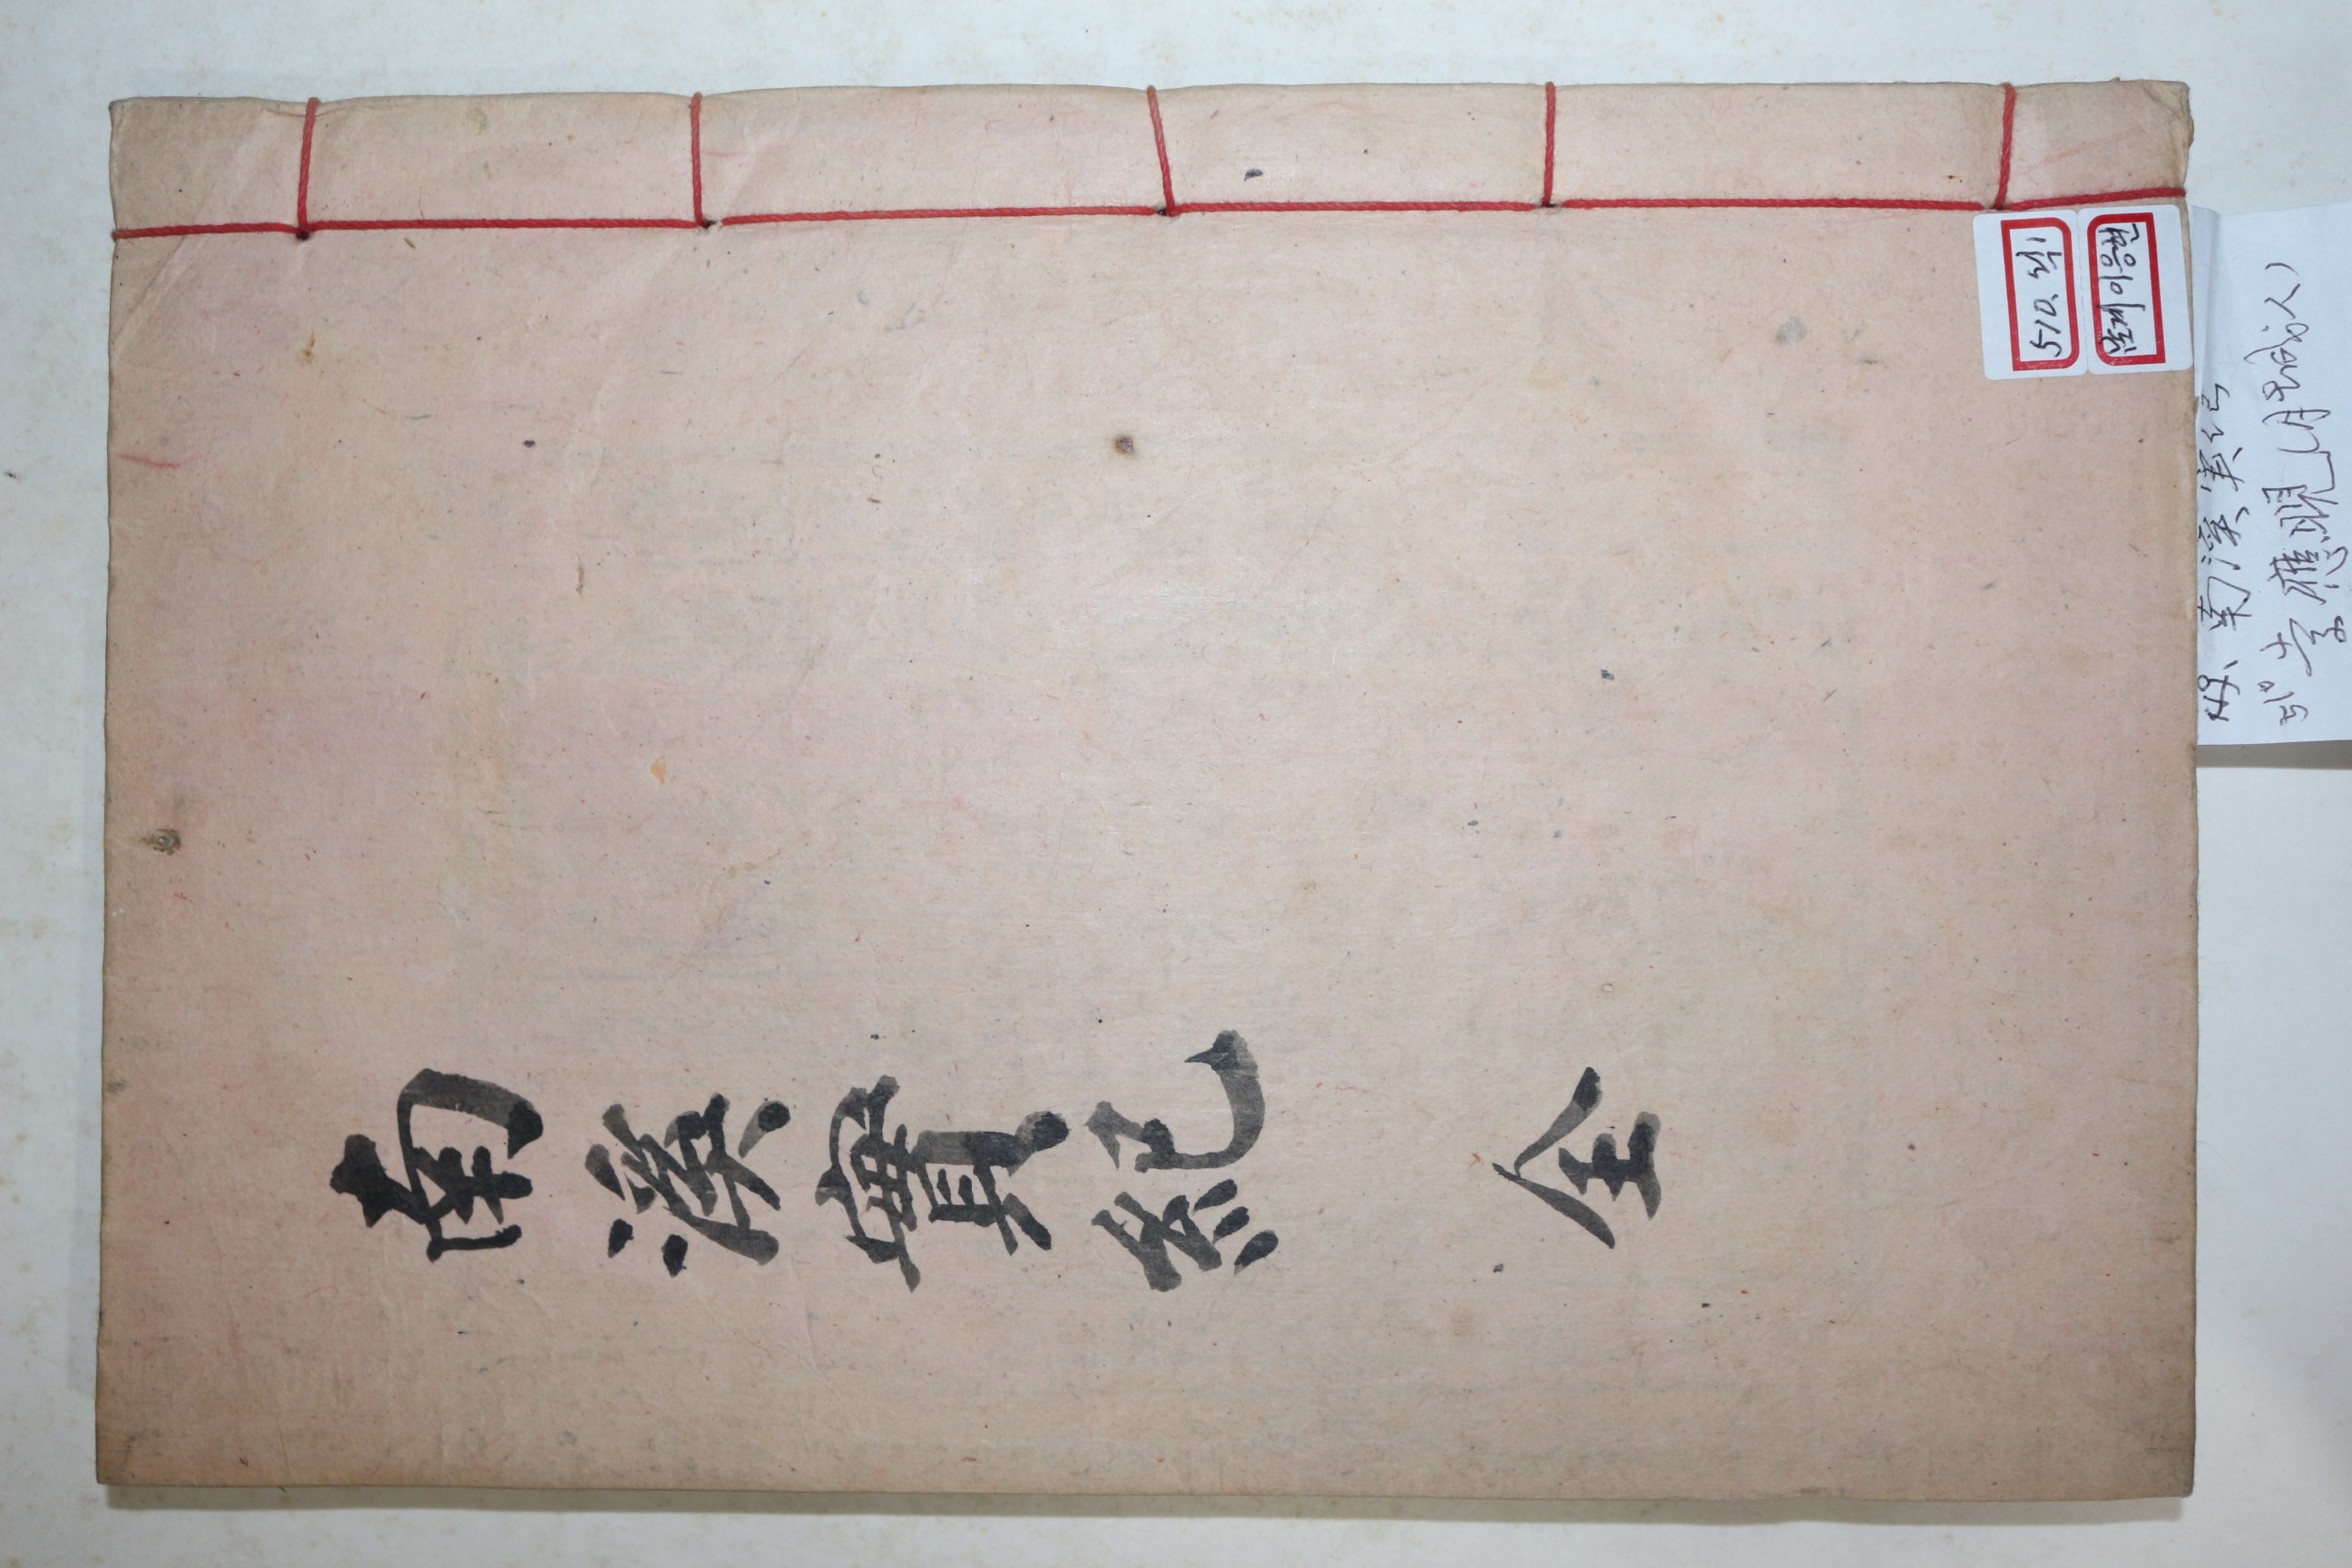 南溪實紀 全
510. 익1
남계 이응현
No. 南溪実紀
510 李應睍(月城人)